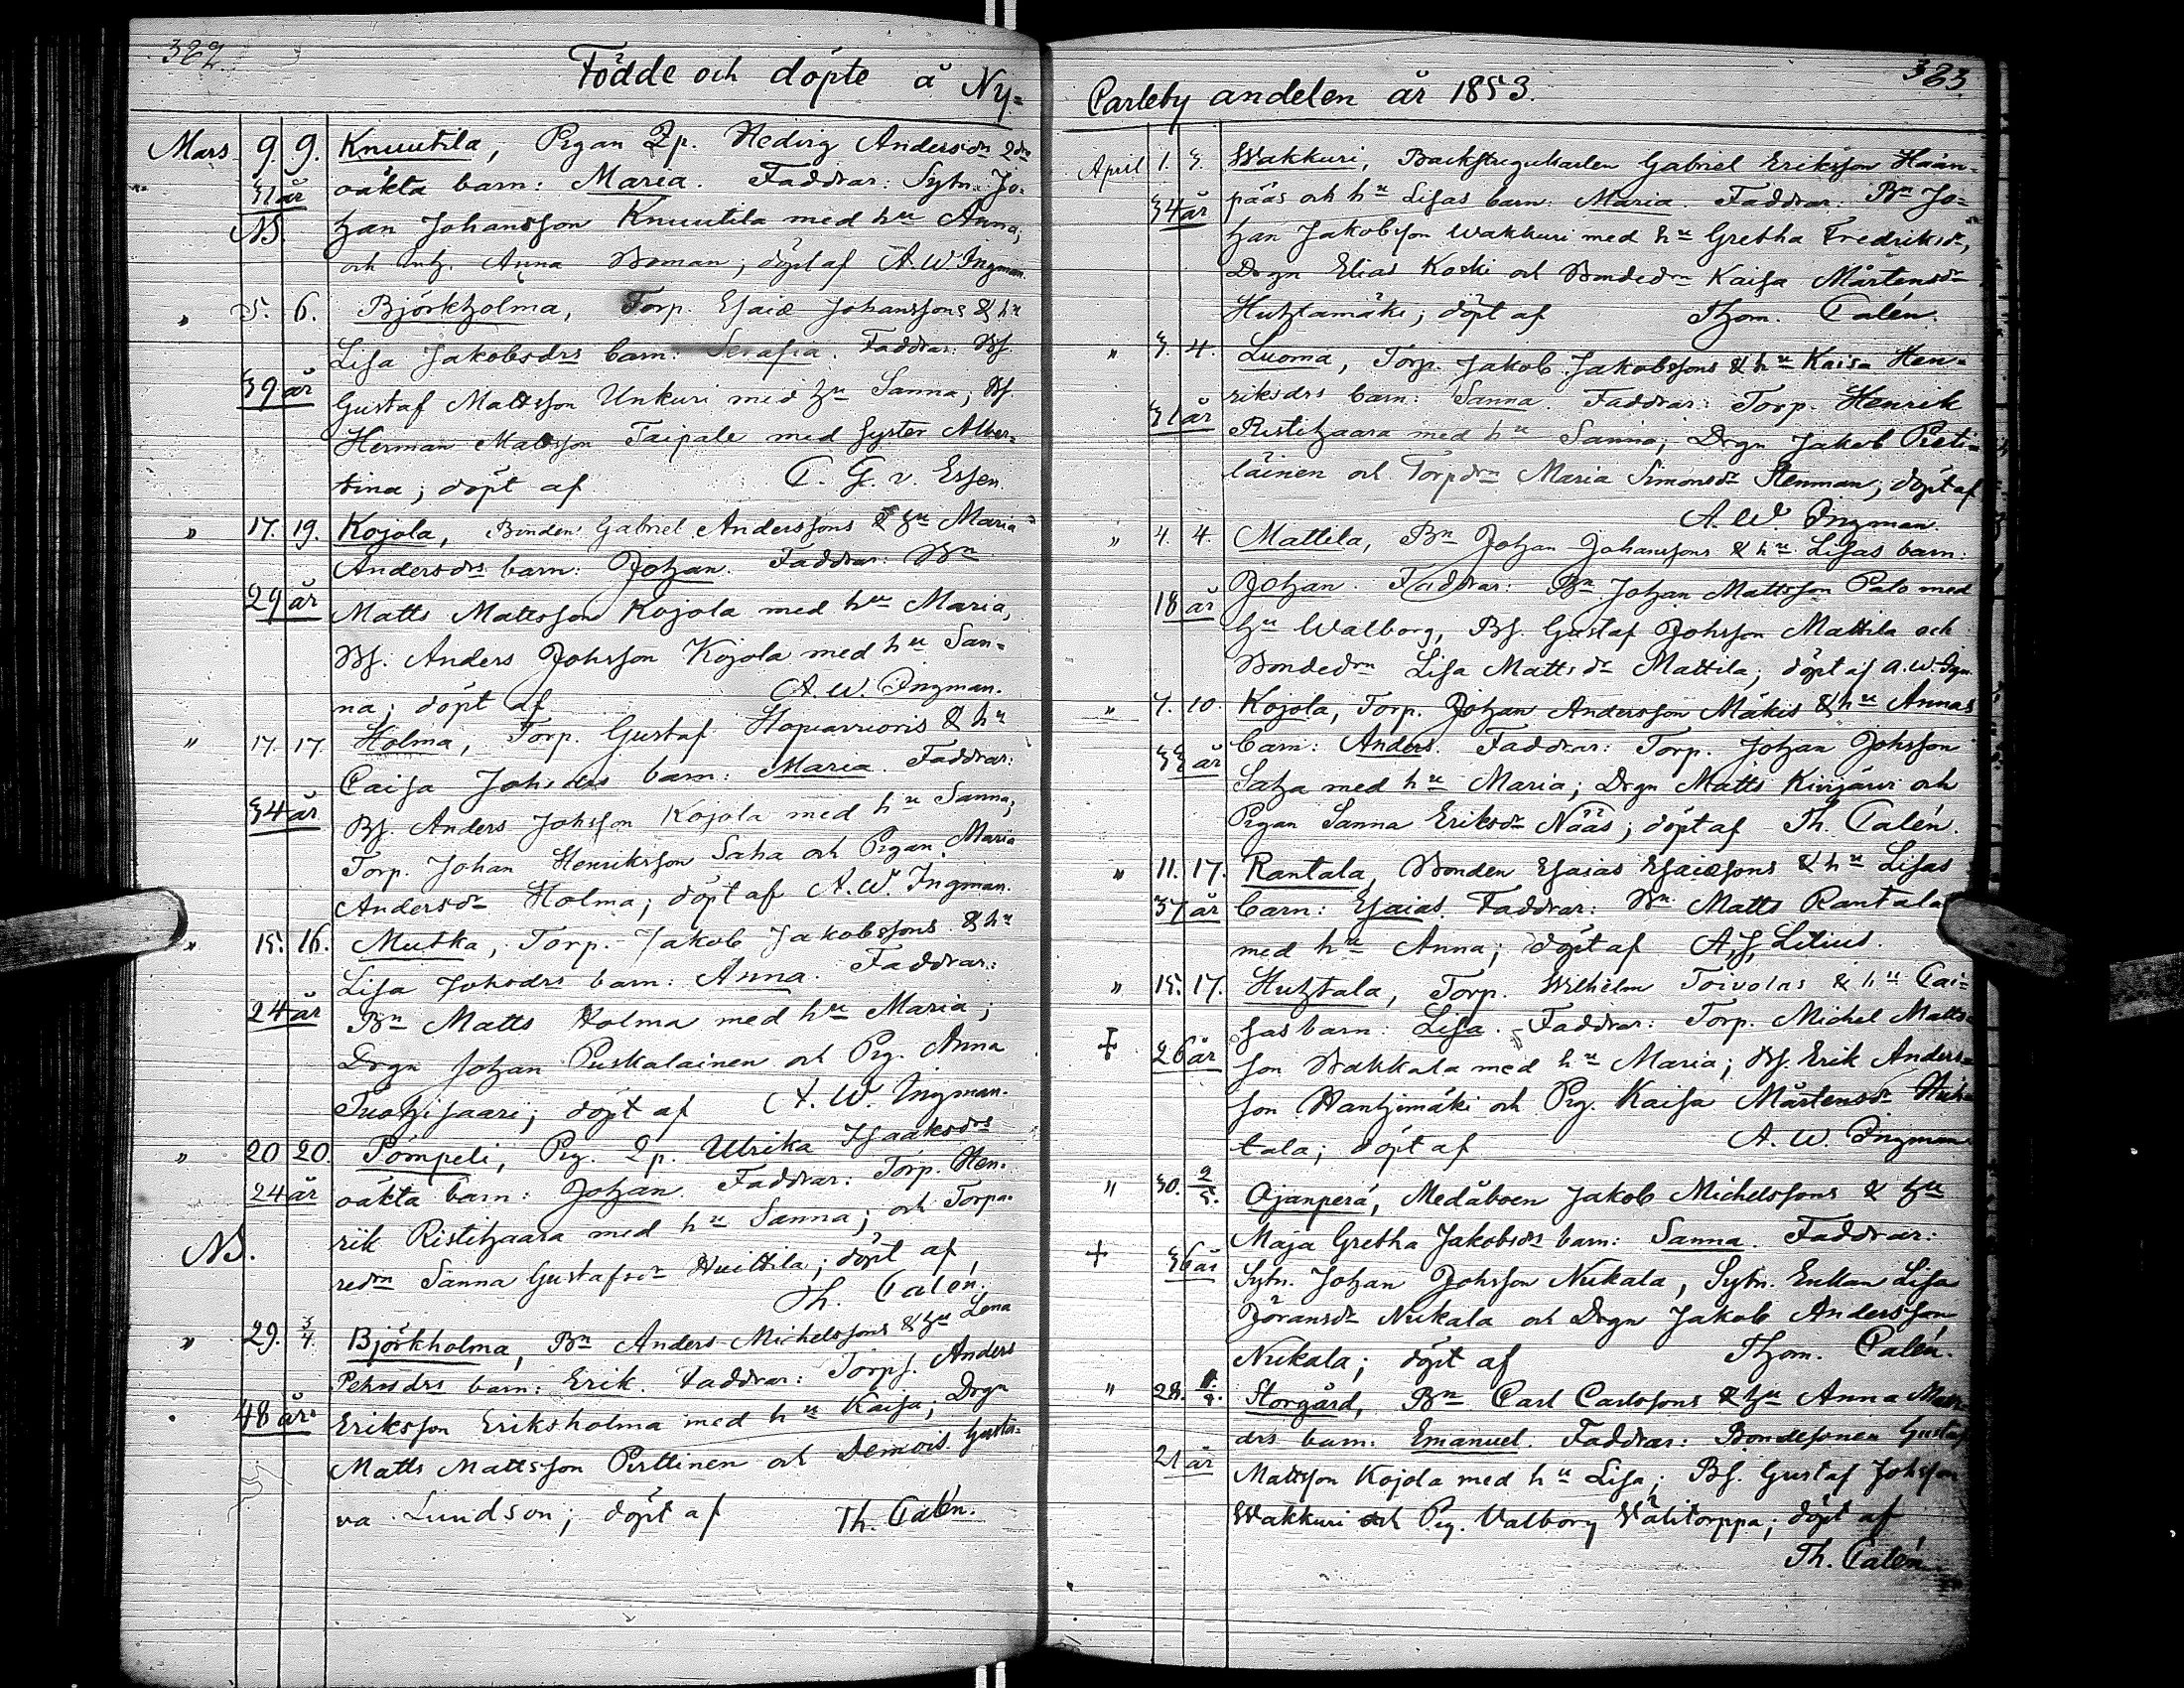 322.
Födde och döpte å Ny-
Mars 9. 9. Knuutila, Pigan Qp. Hedvig Andersdrs 2dra
31 år oäkta barn: Maria. Faddrar: Sytn. Jo-
NB. han Johansson Knuutila med hu Anna;
och Anna Boman; döpt af A. W. Ingman.
" 5. 6. Björkholma, Torp. Esaiæ Johanssons & hu
Lisa Jakobsdrs barn: Serafia. Faddrar: Bs.
39 år Gustaf Mattsson Unkuri med hu Sanna, Bs.
Herman Mattsson Taipale med syster Alber-
tina; döpt af C. G. v. Essen.
" 17. 19. Kojola, Bonden Gabriel Anderssons & hu Maria
Andersdrs barn: Johan. Faddrar: Bn
29 år Matts Mattsson Kojola med hu Maria,
Bs. Anders Johsson Kojola med hu San-
na; döpt af A. W. Ingman.
" 17. 17. Holma, Torp. Gustaf Hopiavuoris & hu
Caisa Johsdrs barn: Maria. Faddrar:
34 år Bs. Anders Johsson Kojola med hu Sanna;
Torp. Johan Henriksson Saha och Pigan Maria
Andersdr Holma; döpt af A. W. Ingman.
" 15. 16. Mutka, Torp. Jakob Jakobssons & hu
Lisa Johsdrs barn: Anna. Faddrar:
24 år Bn Matts Holma med hu Maria;
Drgn Johan Puskalainen och Pig. Anna
Tuohisaari; döpt af A. W. Ingman.
" 20 20. Pömpeli, Pig. Qp. Ulrika Isaaksdrs
24 år oäkta barn: Johan. Faddrar: Torp. Hen-
rik Ristihaara med hu Sanna; och Torpa-
NB. redrn Sanna Gustafsdr Huittila; döpt af
Th. Calén.
" 29. 3/4. Björkholma, Bn Anders Michelssons & hu Lena
Pehrsdrs barn: Erik. Faddrar: Torps. Anders
48 år. Eriksson Eriksholma med hu Kaisa; Drgn
Matts Mattsson Perttinen och Demois. Gusta-
va Lundson; döpt af Th. Calén.
323.
Carleby andelen år 1853.
April 1. 3. Wakkuri, Backstuguharlen Gabriel Eriksson Haan-
34 år pääs och hu Lisas barn: Maria. Faddrar: Bn Jo-
han Jakobsson Wakkuri med hu Gretha Fredriksdr,
Drgn Elias Koski och Bondedrn Kaisa Mårtensdr
Huhtamäki; döpt af Thom. Calén.
" 3. 4. Luoma, Torp. Jakob Jakobssons & hu Kaisa Hen-
riksdrs barn: Sanna. Faddrar: Torp. Henrik
31 år Ristihaara med hu Sanna; Drgn Jakob Pieti-
läinen och Torpdrn Maria Simonsdr Stenman; döpt af
A. W. Ingman.
" 4. 4. Mattila, Bn Johan Johanssons & hu Lisas barn:
Johan. Faddrar: Bn Johan Mattsson Palo med
18 år hu Walborg, Bs. Gustaf Johsson Mattila och
Bondedrn Lisa Mattsdr Mattila; döpt af A. W. Ingm.
" 7. 10. Kojola, Torp. Johan Andersson Mäkis & hu Annas
33 år barn: Anders. Faddrar: Torp. Johan Johsson
Saha med hu Maria; Drgn Matts Kivijärvi och
Pigan Sanna Eriksdr Nääs; döpt af Th. Calén.
" 11. 17. Rantala, Bonden Esaias Esaiæsons & hu Lisas
37 år barn: Esaias. Faddrar: Bn Matts Rantala
med hu Anna; döpt af A. J. Litius.
" 15. 17. Huhtala, Torp. Wilhelm Toivolas & hu Cai-
sas barn: Lisa. Faddrar: Torp. Michel Matts-
+ 26 år son Wakkala med hu Maria; Bs. Erik Anders-
son Hantzimäki och Pig. Kaisa Mårtensdr Huh-
tala; döpt af A. W. Ingman
" 30. 2/5. Ojanperä, Medåboen Jakob Michelssons & hu
Maja Gretha Jakobsdrs barn: Sanna. Faddrar:
+ 36 år Sytn. Johan Johsson Nukala, Sytn. Enkan Lisa
Jöransdr Nukala och Drgn Jakob Andersson
Nukala; döpt af Thom. Calén.
" 28. Storgård, Bn Carl Carlssons & hu Anna Matts-
drs barn: Emanuel. Faddrar: Bondesonen Gustaf
21 år Mattsson Kojola med hu Lisa; Bs. Gustaf Johsson
Wakkuri och Pig. Valborg Wälitorppa; döpt af
Th. Calén.